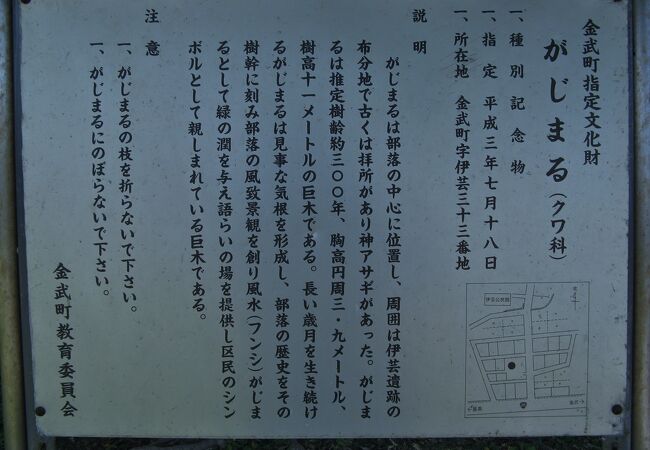 金武町指定文化財
がじまる(クワ科)
一、種別 記念物
一、指定 平成三年七月十八日
一、所在地 金武町字伊芸三十三番地
説明
がじまるは部落の中心に位置し、周囲は伊芸遺跡の
布分地で古くは拝所があり神アサギがあった。がじま
るは推定樹齢約三〇〇年、胸高円周三・九メートル、
樹高十一メートルの巨木である。長い歳月を生き続け
るがじまるは見事な気根を形成し、部落の歴史をその
樹幹に刻み部落の風致景観を創り風水(フンシ)がじま
るとして緑の潤を与え語らいの場を提供し区民のシン
ボルとして親しまれている巨木である。
注意
一、がじまるの枝を折らないで下さい。
一、がじまるにのぼらないで下さい。
金武町教育委員会
伊芸公民館